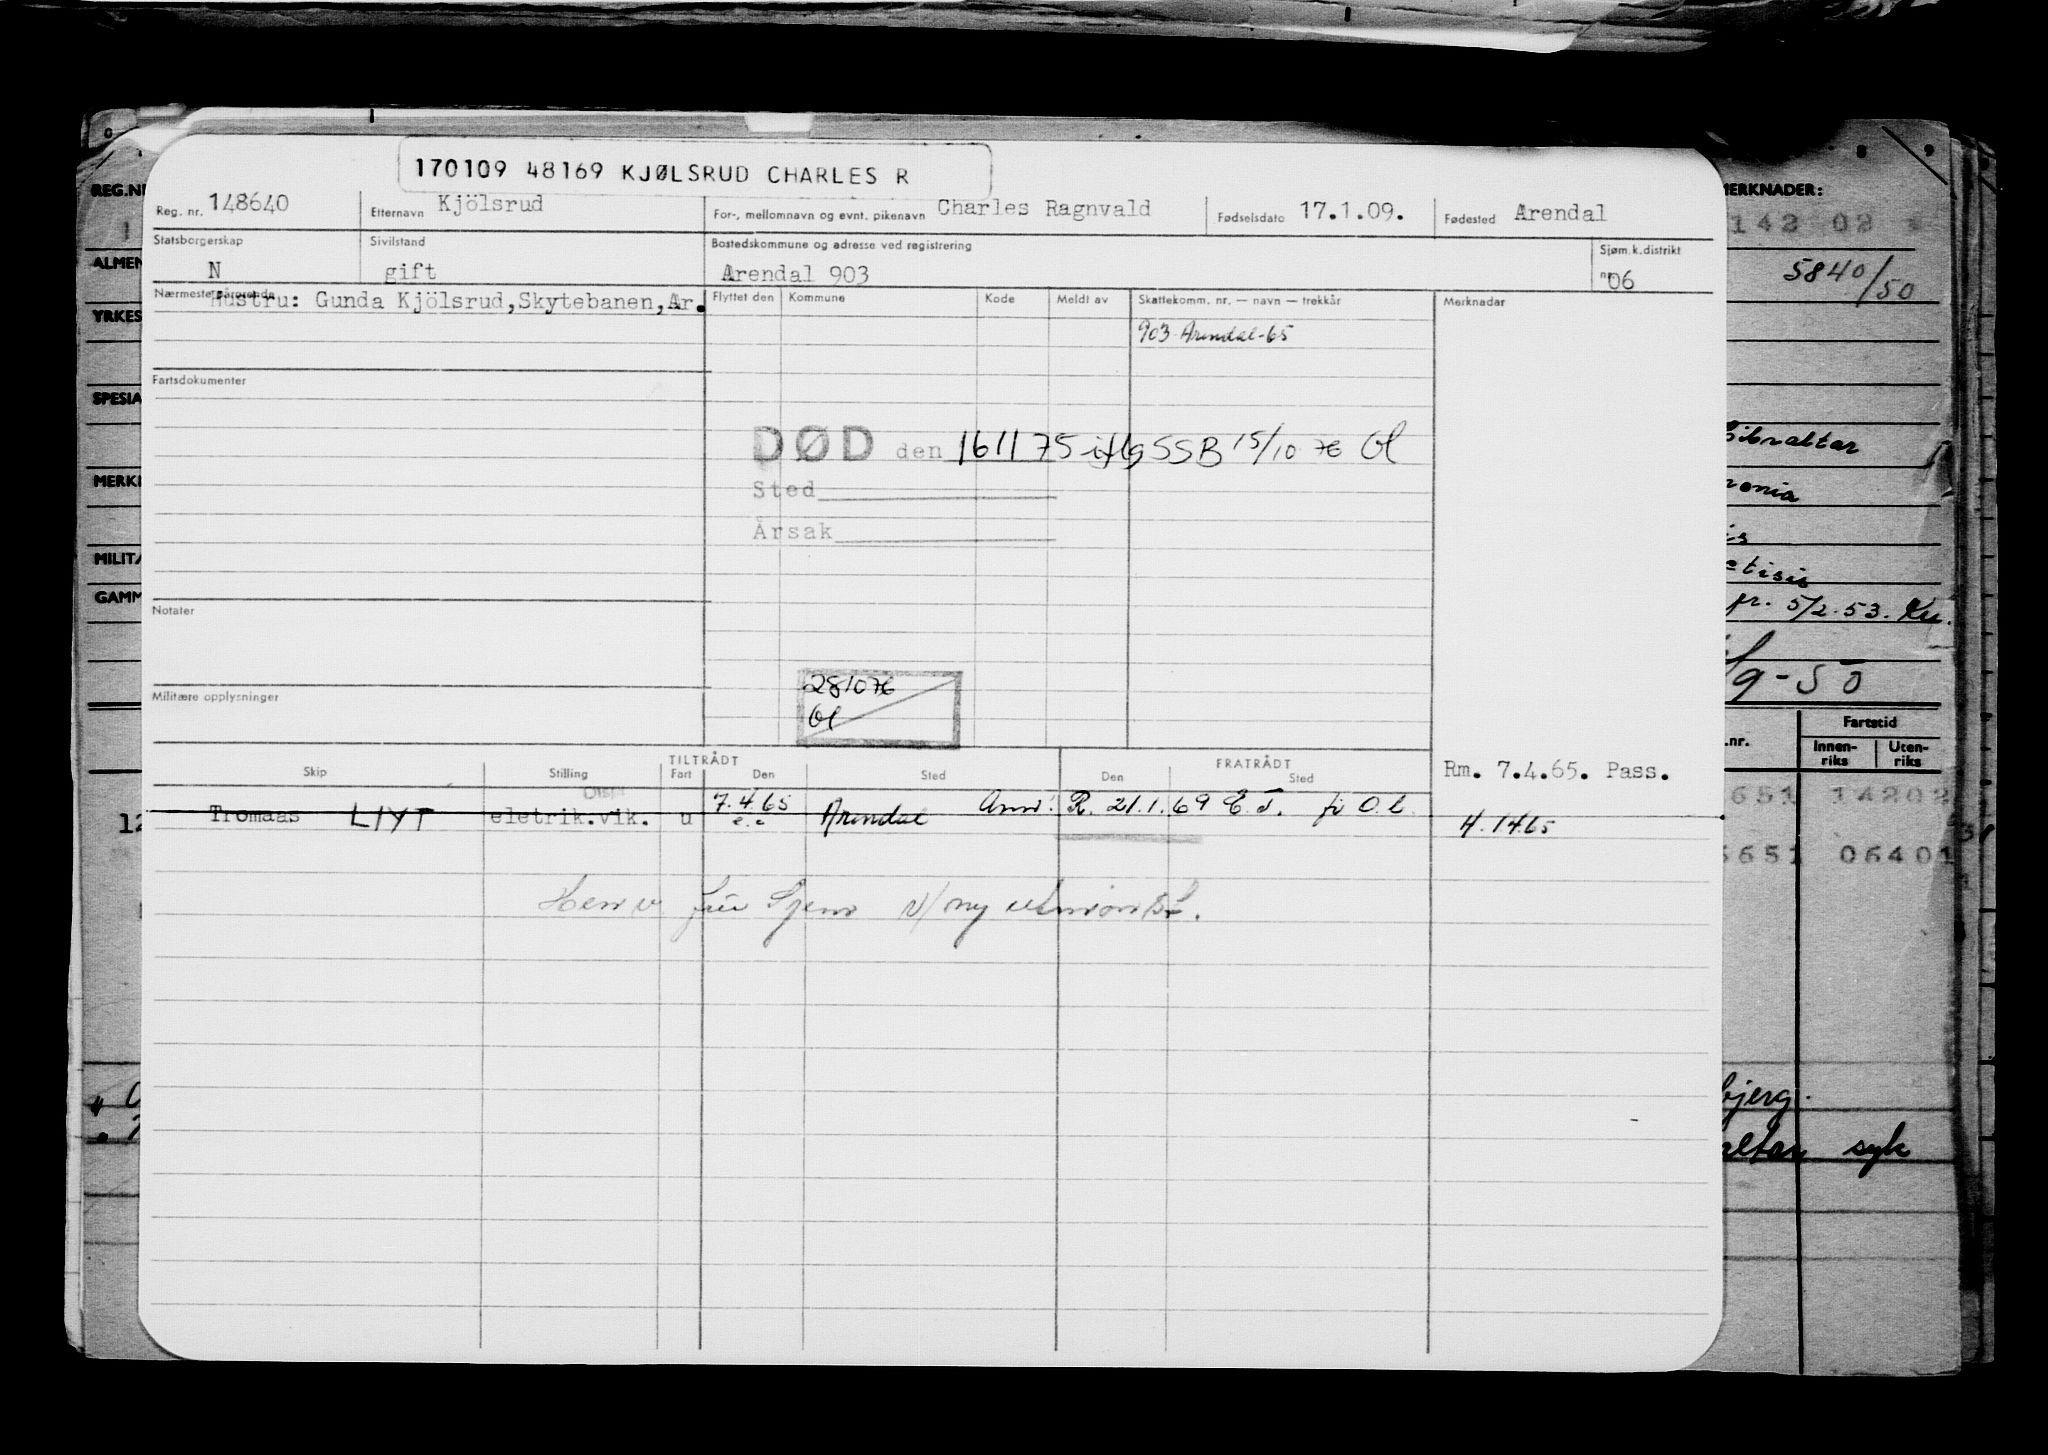 170109 48169 KJØLSRUD CHARLES R
Reg. nr. 148640 Etternavn Kjölsrud For-, mellomnavn og evnt. pikenavn Charles Ragnvald Fødselsdato 17.1.09. Fødested Arendal
Statsborgerskap Sivilstand Bostedskommune og adresse ved registrering Sjøm.k.distrikt
N gift Arendal 903 nr. 06
Nærmeste pårørende Hustru: Gunda Kjölsrud, Skytebanen, Ar. Flyttet den Kommune Kode Meldt av Skattekomm. nr. — navn — trekkår Merknader
903 Arendal-65
Fartsdokumenter
DØD den 161175 iflg SSB 15/10 76 Ol
Sted
Årsak
Notater
281076
Ol
Militære opplysninger
TILTRÅDT FRATRÅDT
Skip Stilling Fart Den Sted Den Sted
Rm. 7.4.65. Pass.
Tromaas LIYT eletrik.vik. u 7.4.65 Arendal R. 21.1.69
4.14.65
REG.NR
ALMEN
YRKES
SPESIA
MERK
MILITÆ
GAMM
12
MERKNADER:
8 9
142 02
5840/50
Gibraltar
ronia
fr. 5/2.53.
/9-50
.nr. Fartstid
Innen-riks Uten-riks
651 14202
5651 06401
bjerg.
altar syk